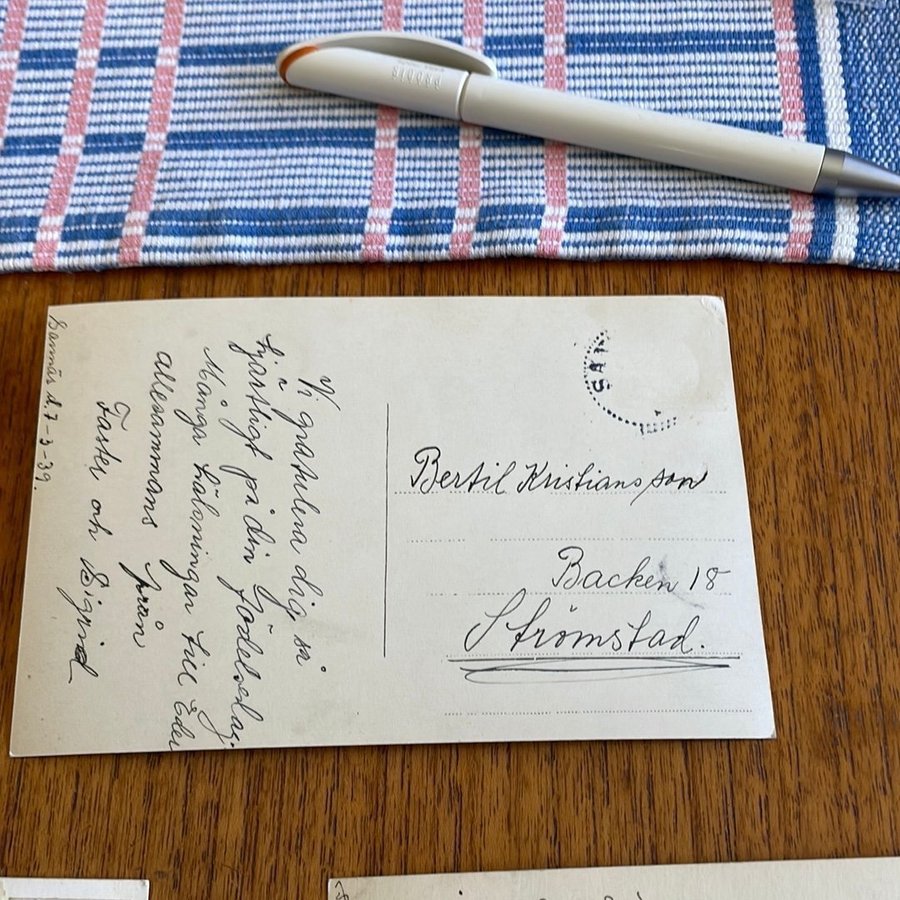 Sannäs d. 7-3-39.
Vi gratulera dig så
hjärtligt på din Födelsedag.
Många hälsningar till Eder
allesammans från
Faster och Sigrid
SAN
Bertil Kristiansson
Backen 18
Strömstad.